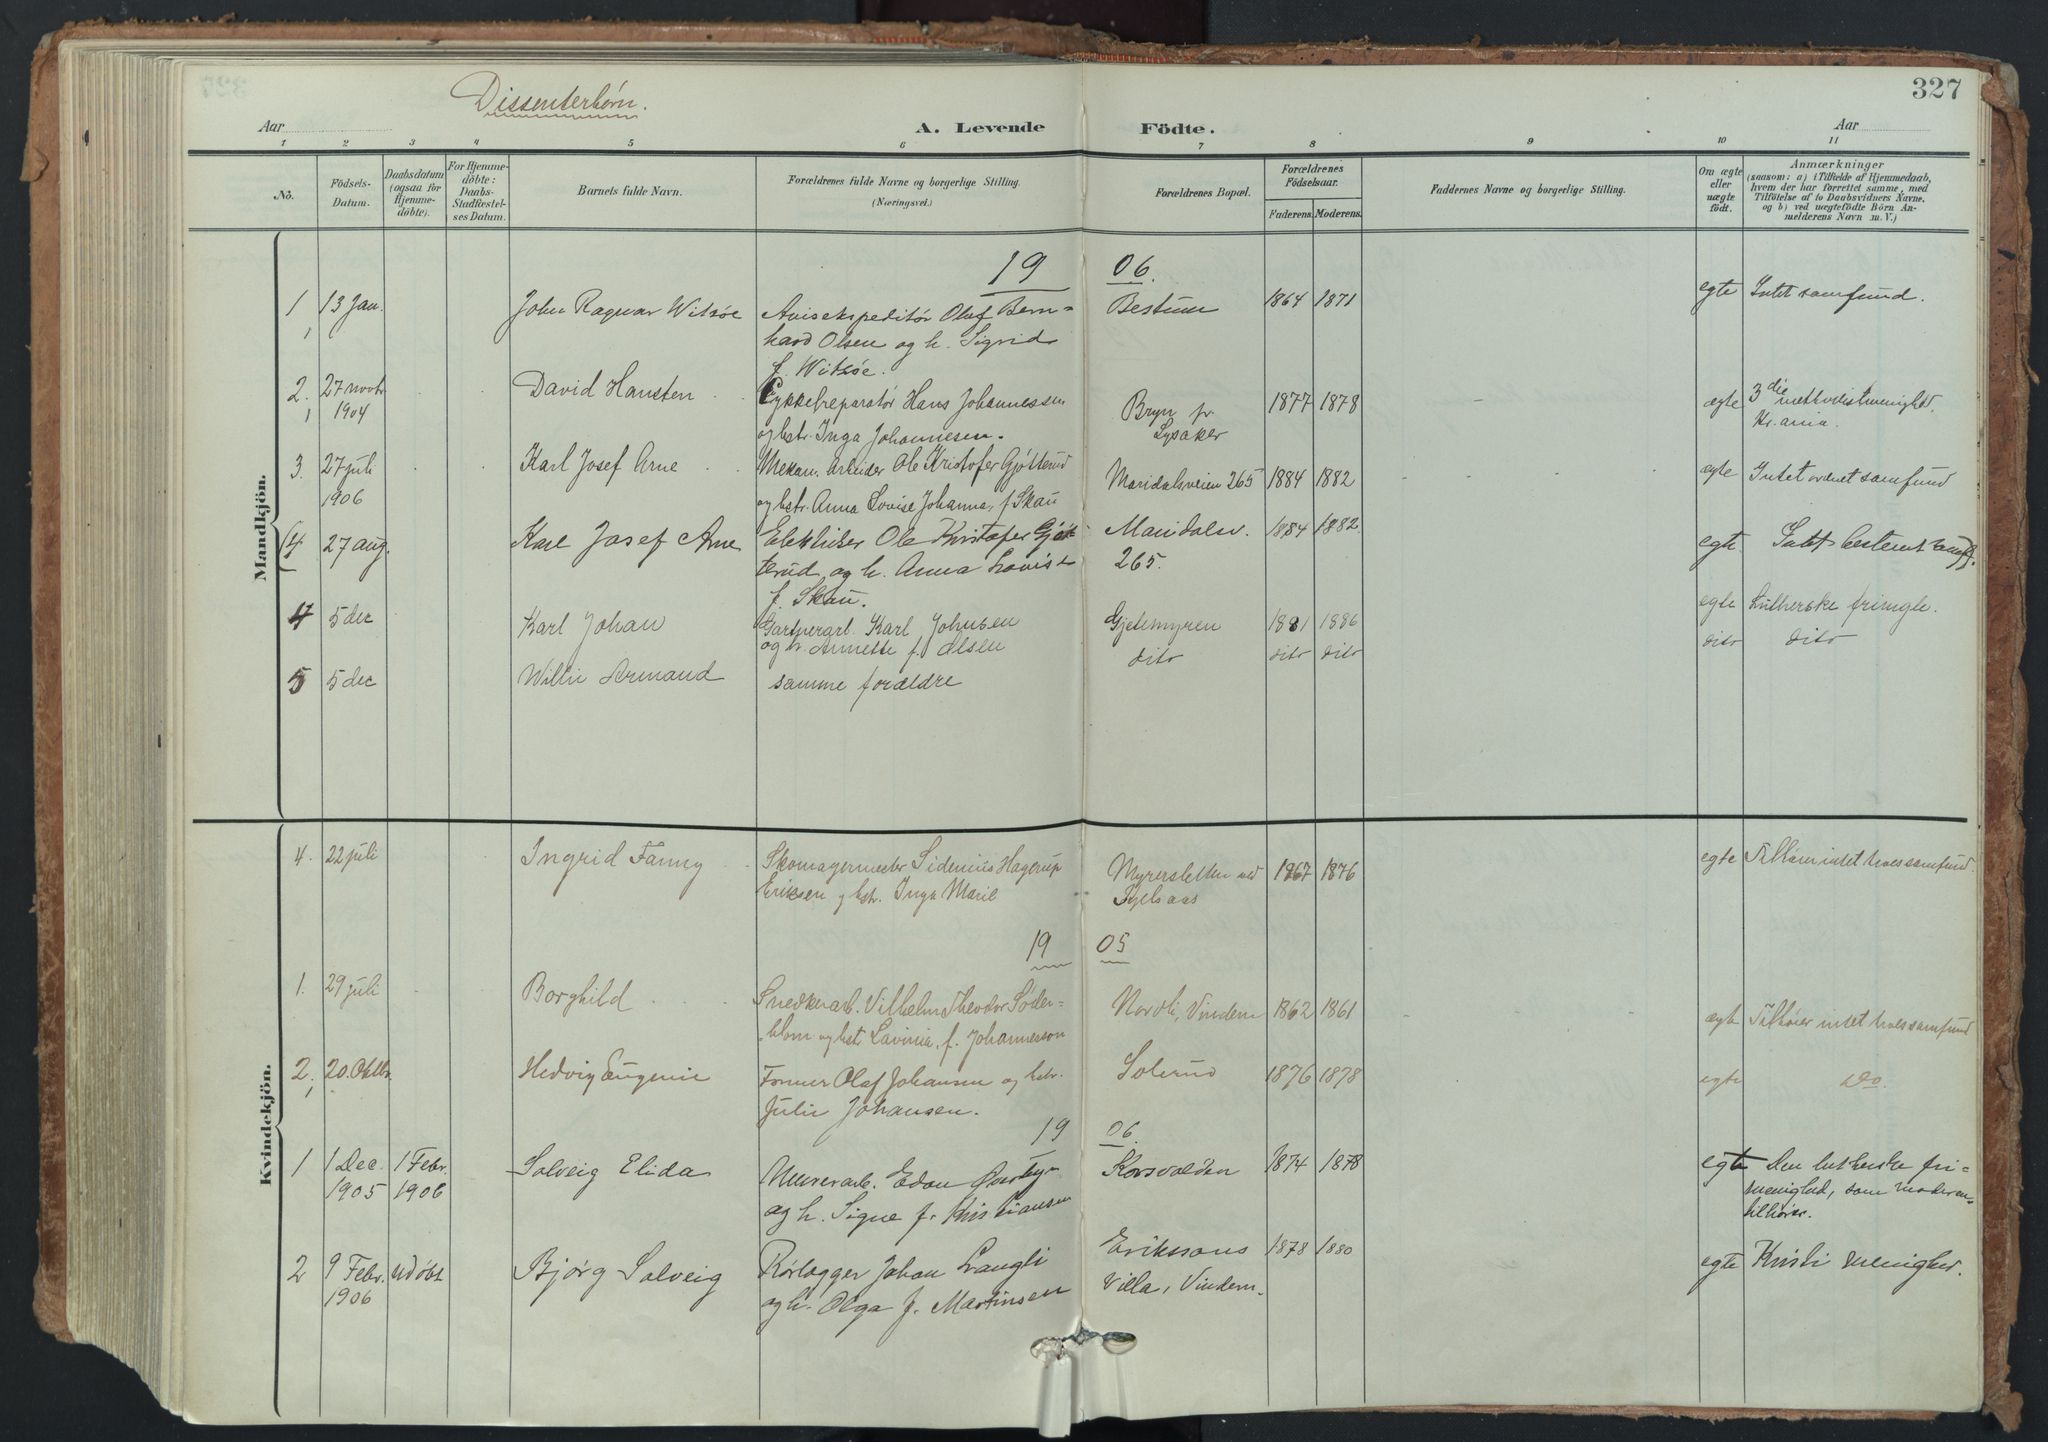 327
Dissenterbörn.
Aar
A. Levende Födte.
Aar
1 2 3 4 5 6 7 8 9 10 11
No.
Födsels-Datum.
Daabsdatum (ogsaa for Hjemme-döbte).
For Hjemme-döbte: Daabs-Stadfæstel-ses Datum.
Barnets fulde Navn.
Forældrenes fulde Navne og borgerlige Stilling.
(Næringsvei.)
Forældrenes Bopæl.
Forældrenes Födselsaar.
Faderens. Moderens.
Faddernes Navne og borgerlige Stilling.
Om ægte eller uægte födt.
Anmærkninger
(saasom: a) i Tilfælde af Hjemmedaab,
hvem der har forrettet samme, med
Tilföielse af to Daabsvidners Navne,
og b) ved uægtefödte Börn An-
melderens Navn m. V.)
Mandkjön.
19 06.
1 13 Jan. John Ragnar Witsøe Avisekspeditør Olaf Bern- Bestum 1864 1871 egte Intet samfund.
hard Olsen og h. Sigrid
f. Witsøe.
2. 27 novbr David Hansten Cykkelreparatør Hans Johannessen Bryn pr. 1877 1878 ægte 3die
1904 og hstr. Inga Johannesen. Lysaker Kr.ania.
3. 27 juli Karl Josef Arne Mekan. arbeider Ole Kristofer Gjötterud Maridalsveien 265 1884 1882 egte Intet ordnet samfund
1906 og hstr. Anna Lovise Johanna, f. Skau
(4 27 aug. Karl Josef Arne Ole Kristofer Gjøt- Maridalsv. 1884 1882 egte. Intet bestemt
terud og h. Anna Lovise 265.
f. Skau.
4 5 dec Karl Johan Gartnerarb. Karl Johnsen Gjetemyren 1881 1886 egte Lutherske frimgh.
og h. Annette f. Olsen dito dito dito dito dito
5 5 dec Willi Armand samme forældre
Kvindekjön.
4. 22 juli Ingrid Fanny Skomagermester Sidenius Hagerup Myrersletten ved 1867 1876 egte Tilhører intet trossamfund.
Eriksen og hstr. Inga Marie
19 05
1. 29 juli Borghild Snedkerarb. Vilhelm Theodor Söder- Nordli, Vindern 1862 1861 ægte Tilhører intet trossamfund
blom og hstr Lavinia, f. Johannesson
2. 20. Oktbr. Hedvig Eugenie Former Olaf Johansen og hstr. Solerud 1876 1878 egte Do.
Julie Johansen.
19 06.
1 1 Dec. 1 Febr. Solveig Elida Murerarb. Edon Øverby Korsvolden 1874 1878 egte Den lutherske fri-
1905 1906 og h. Signe f. Kristiansen menighed, som moderen
tilhører.
2 9 Febr. udøbt Bjørg Solveig Rørlægger Johan Langli Erikssons 1878 1880 egte Kristi menighed.
1906 og h. Olga f. Martinsen Villa, Vindern.